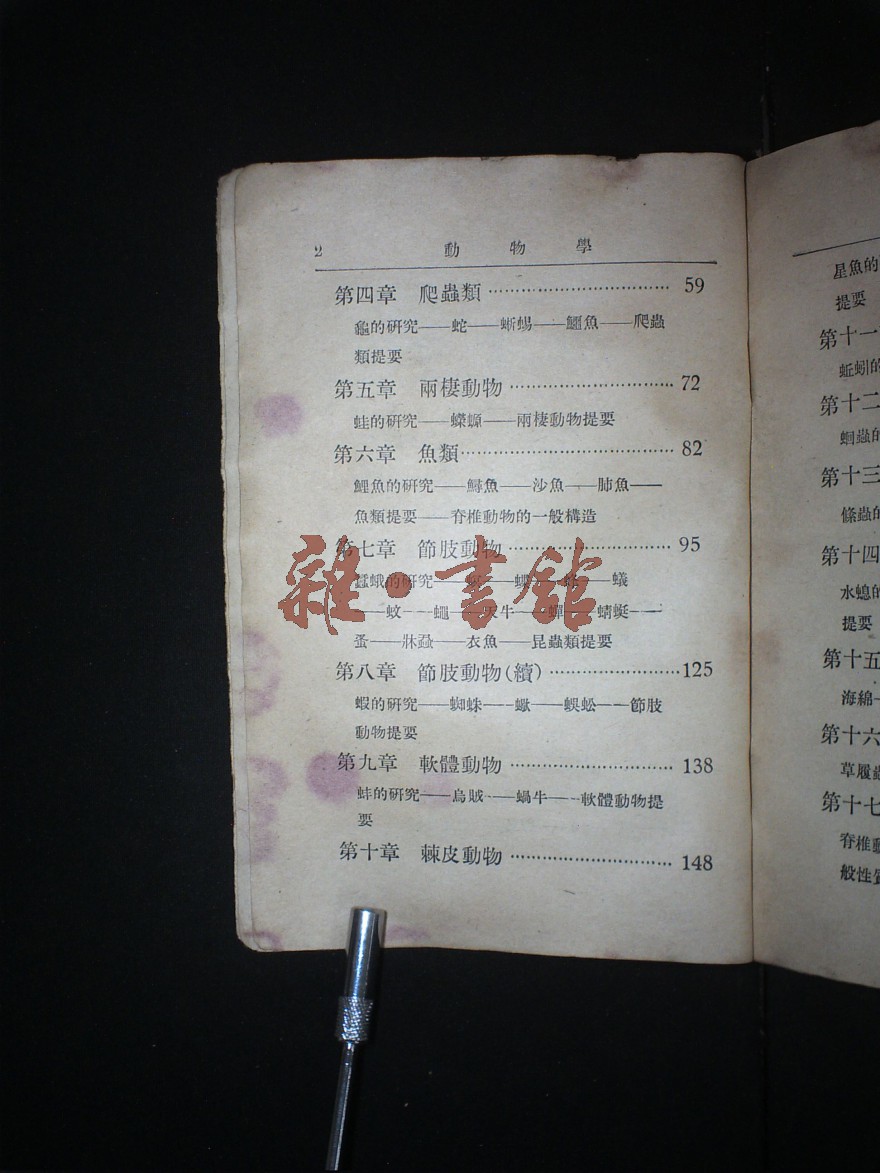 2 動物學
第四章 爬蟲類 59
龜的研究——蛇——蜥蜴——鱷魚——爬蟲
類提要
第五章 兩棲動物 72
蛙的研究——蠑螈——兩棲動物提要
第六章 魚類 82
鯉魚的研究——鱘魚——沙魚——肺魚——
魚類提要——脊椎動物的一般構造
第七章 節肢動物 95
蠶蛾的研究——蝶——蟻
——蚊——蠅——天牛——蟬——蜻蜓——
蚤——牀蝨——衣魚——昆蟲類提要
第八章 節肢動物(續) 125
蝦的研究——蜘蛛——蠍——蜈蚣——節肢
動物提要
第九章 軟體動物 138
蚌的研究——烏賊——蝸牛——軟體動物提
要
第十章 棘皮動物 148
雜·書館
星魚的
提要
第十一
蚯蚓的
第十二
蛔蟲的
第十三
條蟲的
第十四
水螅的
提要
第十五
海綿
第十六
草履蟲
第十七
脊椎動
般性質